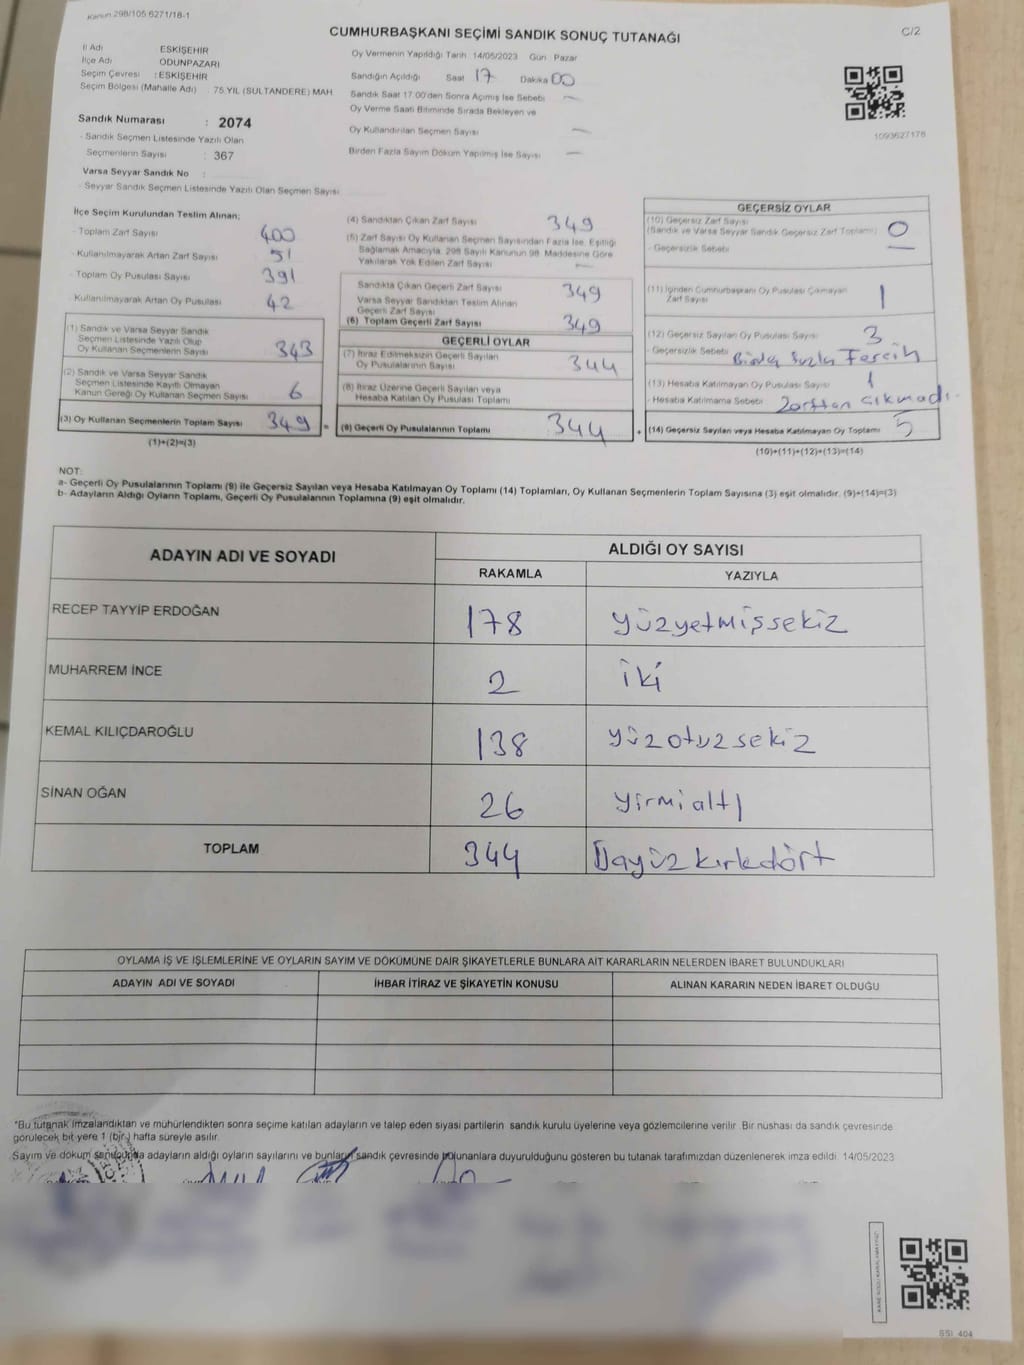 Kanun 298/105 6271/18-1
CUMHURBAŞKANI SEÇİMİ SANDIK SONUÇ TUTANAĞI
C/2
İl Adı ESKİŞEHİR
İlçe Adı ODUNPAZARI
Seçim Çevresi : ESKİŞEHİR
Seçim Bölgesi (Mahalle Adı) : 75.YIL (SULTANDERE) MAH
Oy Vermenin Yapıldığı Tarih 14/05/2023 Gün Pazar
Sandığın Açıldığı Saat 17 Dakika 00
Sandık Saat 17:00'den Sonra Açımış İse Sebebi —
Oy Verme Saati Bitiminde Sırada Bekleyen ve
Oy Kullandırılan Seçmen Sayısı —
Birden Fazla Sayım Döküm Yapılmış İse Sayısı —
1093627176
Sandık Numarası : 2074
- Sandık Seçmen Listesinde Yazılı Olan
Seçmenlerin Sayısı : 367
Varsa Seyyar Sandık No :
- Seyyar Sandık Seçmen Listesinde Yazılı Olan Seçmen Sayısı
İlçe Seçim Kurulundan Teslim Alınan;
- Toplam Zarf Sayısı 400
- Kullanılmayarak Artan Zarf Sayısı 51
- Toplam Oy Pusulası Sayısı 391
- Kullanılmayarak Artan Oy Pusulası 42
(1) Sandık ve Varsa Seyyar Sandık
Seçmen Listesinde Yazılı Olup
Oy Kullanan Seçmenlerin Sayısı 343
(2) Sandık ve Varsa Seyyar Sandık
Seçmen Listesinde Kayıtlı Olmayan
Kanun Gereği Oy Kullanan Seçmen Sayısı 6
(3) Oy Kullanan Seçmenlerin Toplam Sayısı 349 =
(1)+(2)=(3)
(4) Sandıktan Çıkan Zarf Sayısı 349
(5) Zarf Sayısı Oy Kullanan Seçmen Sayısından Fazla İse, Eşitliği
Sağlamak Amacıyla, 298 Sayılı Kanunun 98. Maddesine Göre
Yakılarak Yok Edilen Zarf Sayısı —
Sandıkta Çıkan Geçerli Zarf Sayısı 349
Varsa Seyyar Sandıktan Teslim Alınan
Geçerli Zarf Sayısı
(6) Toplam Geçerli Zarf Sayısı 349
GEÇERLİ OYLAR
(7) İtiraz Edilmeksizin Geçerli Sayılan
Oy Pusulalarının Sayısı 344
(8) İtiraz Üzerine Geçerli Sayılan veya
Hesaba Katılan Oy Pusulası Toplamı
(9) Geçerli Oy Pusulalarının Toplamı 344 +
GEÇERSİZ OYLAR
(10) Geçersiz Zarf Sayısı
(Sandık ve Varsa Seyyar Sandık Geçersiz Zarf Toplamı) 0
- Geçersizlik Sebebi —
(11) İçinden Cumhurbaşkanı Oy Pusulası Çıkmayan
Zarf Sayısı 1
(12) Geçersiz Sayılan Oy Pusulası Sayısı 3
- Geçersizlik Sebebi
(13) Hesaba Katılmayan Oy Pusulası Sayısı 1
- Hesaba Katılmama Sebebi Zarftan Çıkmadı.
(14) Geçersiz Sayılan veya Hesaba Katılmayan Oy Toplamı 5
(10)+(11)+(12)+(13)=(14)
NOT:
a- Geçerli Oy Pusulalarının Toplamı (9) ile Geçersiz Sayılan veya Hesaba Katılmayan Oy Toplamı (14) Toplamları, Oy Kullanan Seçmenlerin Toplam Sayısına (3) eşit olmalıdır. (9)+(14)=(3)
b- Adayların Aldığı Oyların Toplamı, Geçerli Oy Pusulalarının Toplamına (9) eşit olmalıdır.
ADAYIN ADI VE SOYADI
ALDIĞI OY SAYISI
RAKAMLA YAZIYLA
RECEP TAYYİP ERDOĞAN 178 yüzyetmişsekiz
MUHARREM İNCE 2 iki
KEMAL KILIÇDAROĞLU 138 yüzotuzsekiz
SİNAN OĞAN 26 yirmialtı
TOPLAM 344 Üçyüzkırkdört
OYLAMA İŞ VE İŞLEMLERİNE VE OYLARIN SAYIM VE DÖKÜMÜNE DAİR ŞİKAYETLERLE BUNLARA AİT KARARLARIN NELERDEN İBARET BULUNDUKLARI
ADAYIN ADI VE SOYADI İHBAR İTİRAZ VE ŞİKAYETİN KONUSU ALINAN KARARIN NEDEN İBARET OLDUĞU
*Bu tutanak imzalandıktan ve mühürlendikten sonra seçime katılan adayların ve talep eden siyasi partilerin sandık kurulu üyelerine veya gözlemcilerine verilir. Bir nüshası da sandık çevresinde
görülecek bir yere 1 (bir) hafta süreyle asılır.
Sayım ve döküm sonucunda adayların aldığı oyların sayılarını ve bunların sandık çevresinde bulunanlara duyurulduğunu gösteren bu tutanak tarafımızdan düzenlenerek imza edildi. 14/05/2023
SSİ 404